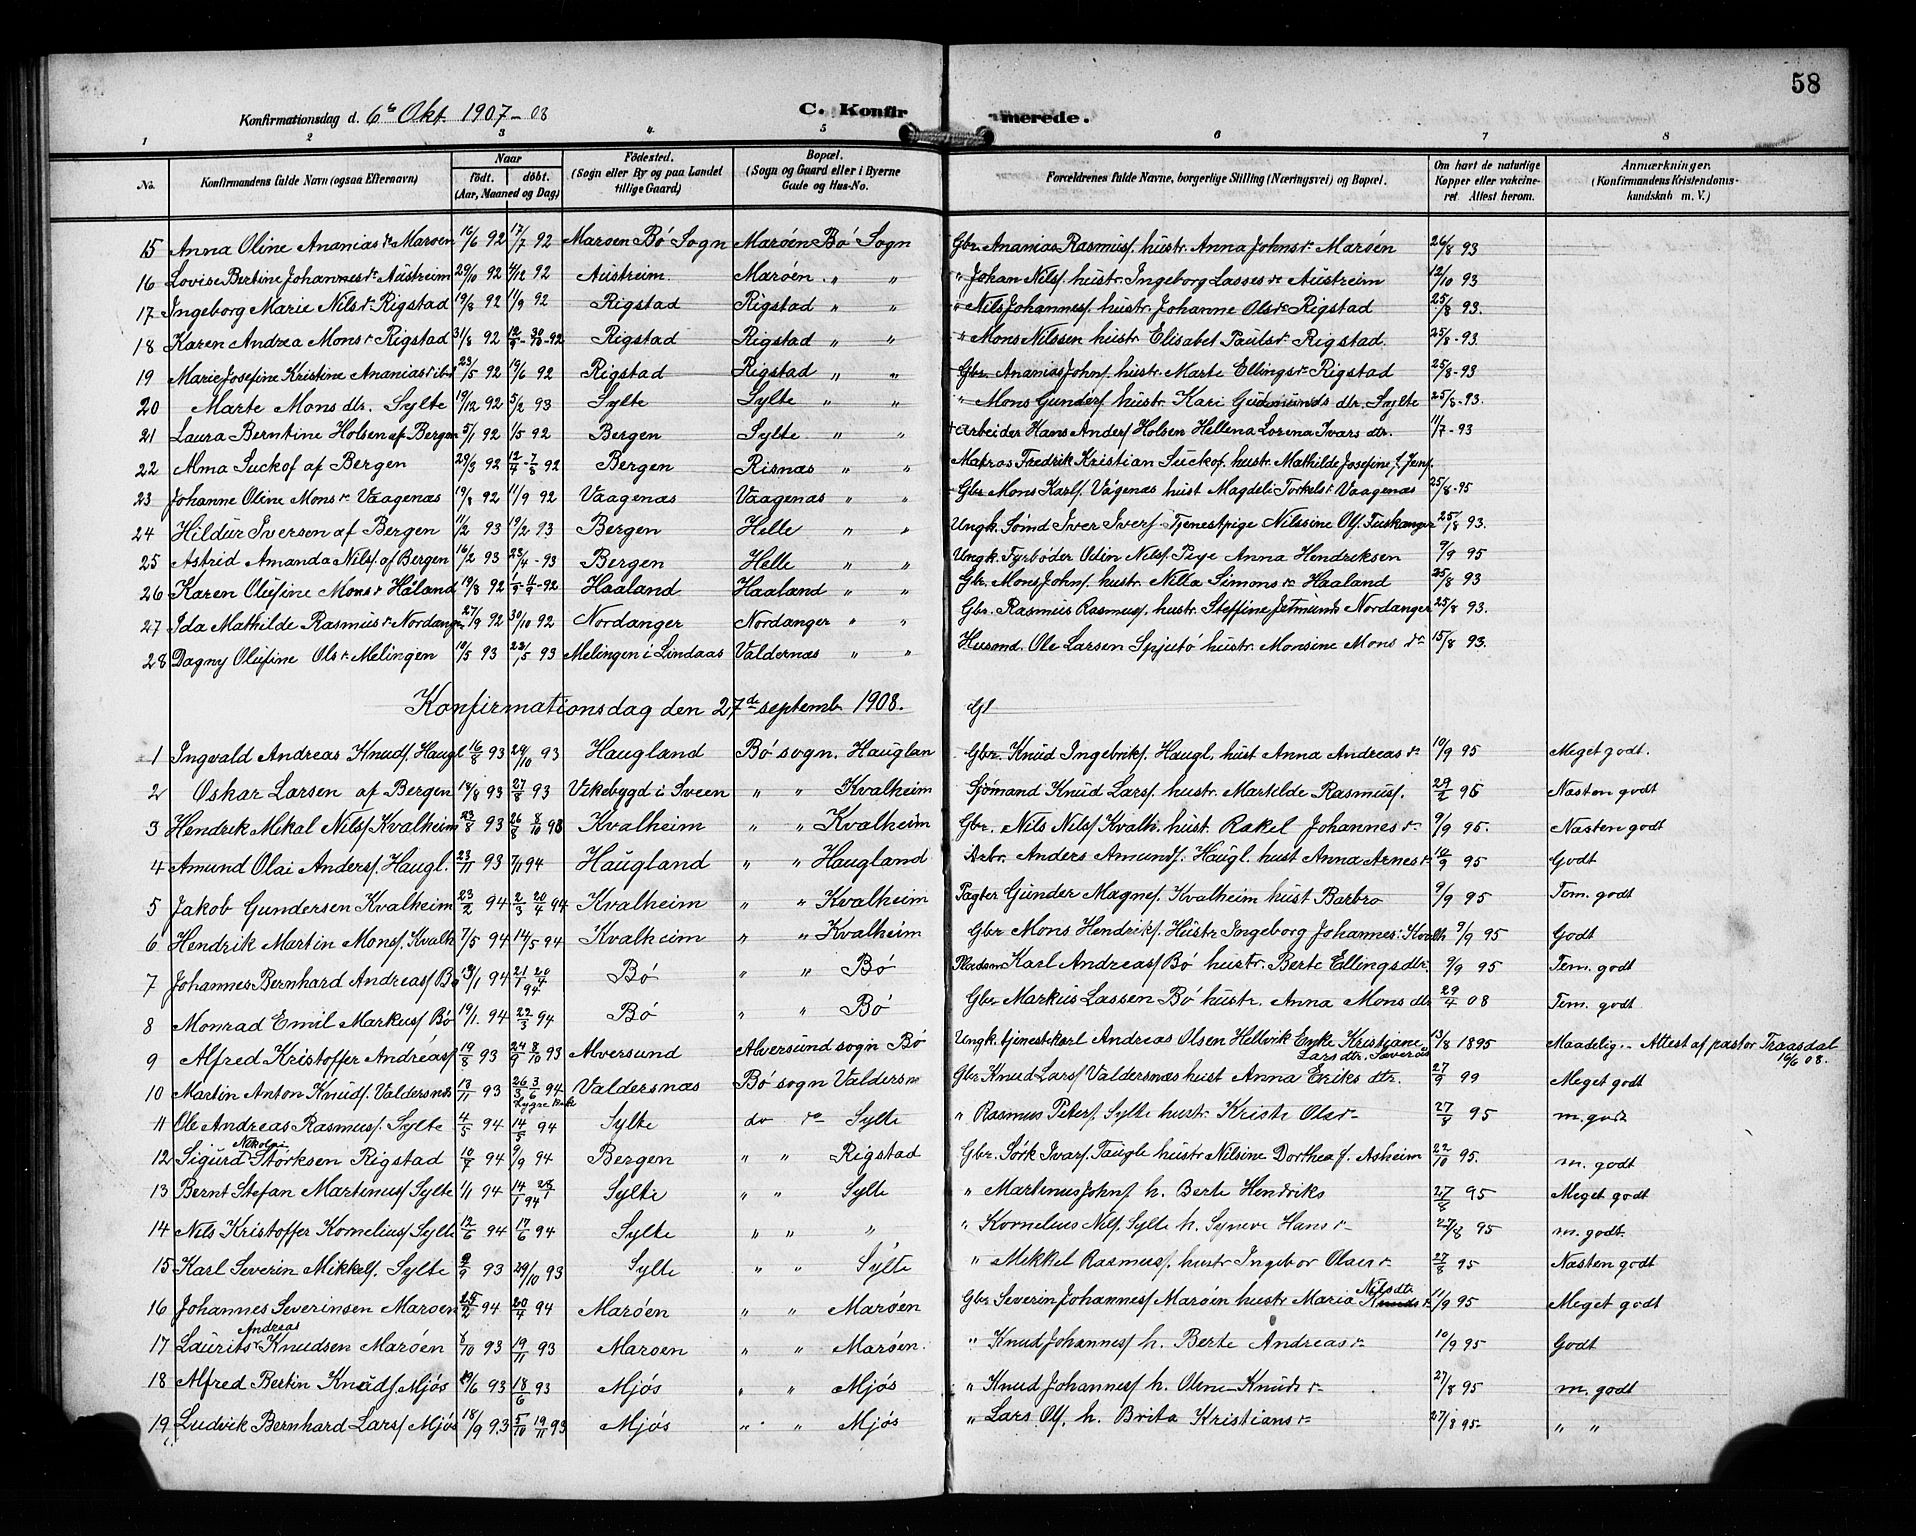 58
Konfirmationsdag d. 6te Okt. 1907-08 C. Konfirmerede.
1 2 3 4 5 6 7 8
No. Konfirmandens fulde Navn (ogsaa Efternavn) Naar født. døbt. (Aar, Maaned og Dag) Fødested. (Sogn eller By og paa Landet tillige Gaard) Bopæl. (Sogn og Gaard eller i Byerne Gade og Hus-No. Forældrenes fulde Navne, borgerlige Stilling (Næringsvei) og Bopæl. Om havt de naturlige Kopper eller vakcineret. Attest herom. Anmærkninger. (Konfirmandens Kristendomskundskab m. V.)
15 Anna Oline Ananiasdr Marøen 16/6 92 17/7 92 Marøen Bö Sogn Marøen Bö Sogn Gbr. Ananias Rasmusf. hustr. Anna Johnsdr Marøén 26/8 93
16 Lovise Bertine Johannesdr Austreim 29/10 92 92 Austreim. Marøén. " " " Johan Nilsf. hustr. Ingeborg Lassesdr Austreim 12/10 93
17 Ingeborg Marie Nilsdr Rigstad 19/8 92 11/9 92 Rigstad Rigstad " " " Nils Johannesf. hustr. Johanne Olsdr Rigstad 25/8 93.
18 Karen Andrea Monsdr Rigstad 31/8 92 92 Rigstad Rigstad " " " Mons Nilssen hustr Elisabet Paulsdr Rigstad. 25/8-93.
19 Marie Josefine Kristine Ananiasdr ibd 23/5 92 19/6 92 Rigstad Rigstad " " Gbr. Ananias Johnf. hustr. Marte Ellingsdr Rigstad 25/8-93
20 Marte Mons dtr. Sylte 19/12 92 5/2 93 Sylte Sylte " " " Mons Gunderf hustr. Kari Gudmunds dtr. Sylte 25/8-93.
21 Laura Berntine Holsen af Bergen 5/1 92 1/5 92 Bergen Sylte " " Arbeider Hans Andersf Holsen Hellena Lorena Ivars dtr. 11/7-93
22 Alma Suckof af Bergen 29/3 92 12/4-7/8 92 Bergen Risnæs " " Matros Fredrik Kristian Suckof. hustr. Mathilde Josefine f. Jensf.
23 Johanne Oline Monsdr Vaagenæs 19/8 92 11/9 92 Vaagenæs Vaagenæs " " Gbr. Mons Karlf. Vågenæs hust Magdeli Torkelsdr Vaagenæs 25/8-95
24 Hildur Iversen af Bergen 11/2 93 19/2 93 Bergen Helle " " Ungk. Sømd Iver Iversf Tjenestpige Nilssine Olf. Fuskanger 25/8 93.
25 Astrid Amanda Nilsf. af Bergen 16/2 93 23/4-93 Bergen Helle " " Ungk. Fyrbøder Odin Nilsf. Pige Anna Hendriksen 9/9 95
26 Karen Olufine Monsdr Håland 19/8 92 92 Haaland Haaland " " Gbr. Mons Johnf. hustr. Nilla Simonsdr Haaland 25/8 93
27 Ida Mathilde Rasmusdr Nordanger 27/9 92 30/10 92 Nordanger Nordanger " " Gbr. Rasmus Rasmusf. hustr. Steffine Jetmunds Nordanger 25/8 93.
28 Dagny Olufine Olsdr Melingen 10/5 93 22/5 93 Melingen i Lindaas Valdernæs " " Husmd. Ole Larsen Spjutö hustr. Monsine Mons dr 15/8 93.
Konfirmationsdag den 27de septemb 1908. Gl
1 Ingvald Andreas Knudf Haugl 16/8 93 29/10 93 Haugland Bö sogn. Hauglan Gbr. Knud Ingebrikf. Haugl. hust Anna Andreasdr 10/9 95 Meget godt.
2 Oskar Larsen af Bergen 14/8 93 27/8 93 Vikebygd i Sveen " " Kvalheim Sjømand Knud Larsf. hustr. Martilde Rasmusf. 29/2 96 Næsten godt
3 Hendrik Mekal Nilsf Kvalheim 23/8 93 26/8 8/10 93 Kvalheim " " Kvalheim Gbr. Nils Nilsf Kvalh. hust. Rakel Johannesdr 9/9 95. Næsten godt
4 Amund Olai Andersf. Haugl. 23/11 93 7/1 94 Haugland " " Haugland Arbr. Anders Amundf. Haugl. hust Anna Arnesdr 10/9 95 Godt
5 Jakob Gundersen Kvalheim 23/2 94 2/3 20/4 94 Kvalheim " " Kvalheim Pagter Gunder Magnef. Kvalheim hust Barbro 9/9 95 Tem. godt
6 Hendrik Martin Monsf. Kvalh 7/5 94 14/5 94 Kvalheim " " Kvalheim Gbr Mons Hendrikf. Hustr Ingeborg Johannes: Kvalh 9/9 95 Godt
7 Johannes Bernhard Andreasf Bø 13/1 94 21/1 20/4 94 Bö " " Bö Pladsm Karl Andreasf Bö hustr. Berte Ellingsdtr. 9/9 95 Tem. godt
8 Monrad Emil Markusf Bö 19/1. 94 22/3 94 Bö " " Bö Gbr Markus Lassen Bö hustr. Anna Mons dtr 29/4 08 Tem. godt
9 Alfred Kristoffer Andreasf 19/8 93 24/9 8/10 93 Alversund Alversund sogn Bö Ungk. tjenestekarl Andreas Olsen Hellvik Enke Kristiane Lars dtr. 13/8 1895 Maadelig. - Attest af pastor Traasdal 16/6 08.
10 Martin Anton Knudf. Valdersnæs 13/11 93 26/3 3/6 94 Valdersnæs Bö sogn Valdersn Gbr Knud Larsf Valdersnæs hust Anna Eriks dtr. 27/9 99 Meget godt
11 Ole Andreas Rasmusf. Sylte 4/5 94 14/5 94 Sylte do do Sylte " Rasmus Petersf. Sylte hustr. Kristi Olsdr 27/8 95 m. godt
12 Sigurd Nikolai Störksen Rigstad 10/7 94 9/9 94 Bergen " " Rigstad Gbr. Störk Ivarsf. Taugle hustr Nilsine Dorthea f. Asheim 22/10 95. m. godt
13 Bernt Stefan Martinusf Sylte 1/1 94 14/1 28/1 94 Sylte " " Sylte " Martinus Johnf h. Berte Hendriks 27/8 95 Meget godt
14 Nils Kristoffer Korneliusf Sylte 12/6 94 17/6 94 Sylte " " " " Kornelius Nilf. Sylte h. Syneve Hansdr 27/8 95 m. godt
15 Karl Severin Mikkelf. Sylte 93 29/10 93 Sylte " " Sylte " Mikkel Rasmusf. hustr Ingebor Olsendr 27/8 95 Næsten godt
16 Johannes Severinsen Marøen 25/2 94 20/4 94 Marøen " " Marøen Gbr Severin Johannesf Marøen hustr Maria Nilsdtr 11/9 95 Meget godt
17 Laurits Andreas Knudsen Marøén 8/10 93 19/11 93 Marøen " " Marøén. " Knud Johannesf h. Berte Andreasdr 10/9 95 Godt
18 Alfred Bertin Knudf. Mjös 93 18/6 93 Mjös " " Mjös " Knud Johannesf h. Oline Knudsdr 27/8 95 m. godt
19 Ludvik Bernhard Larsf Mjös 18/9 93 5/10 19/11 93 Mjös " " Mjös " Lars Olf. h. Brita Kristiansdr 27/8 95 " "